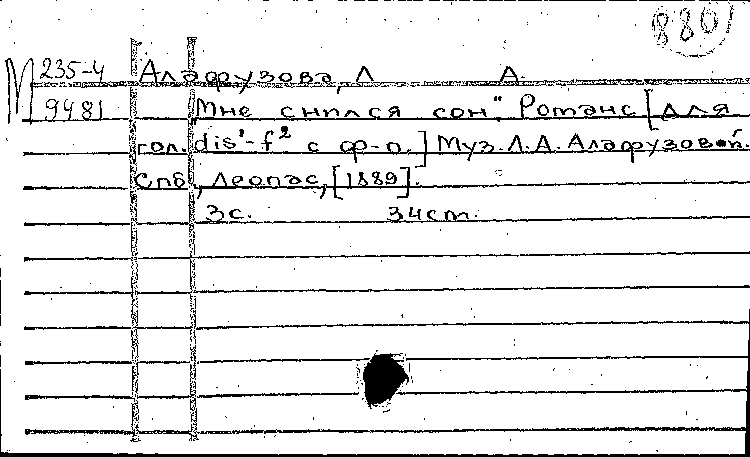 880
М 235-4 Алафузова, Л А.
9481 „Мне снился сон". Романс [для
гол. dis¹-f² с ф-п.] Муз. Л. А. Алафузовой.
Спб., Леопас, [1889].
3с. 34ст.